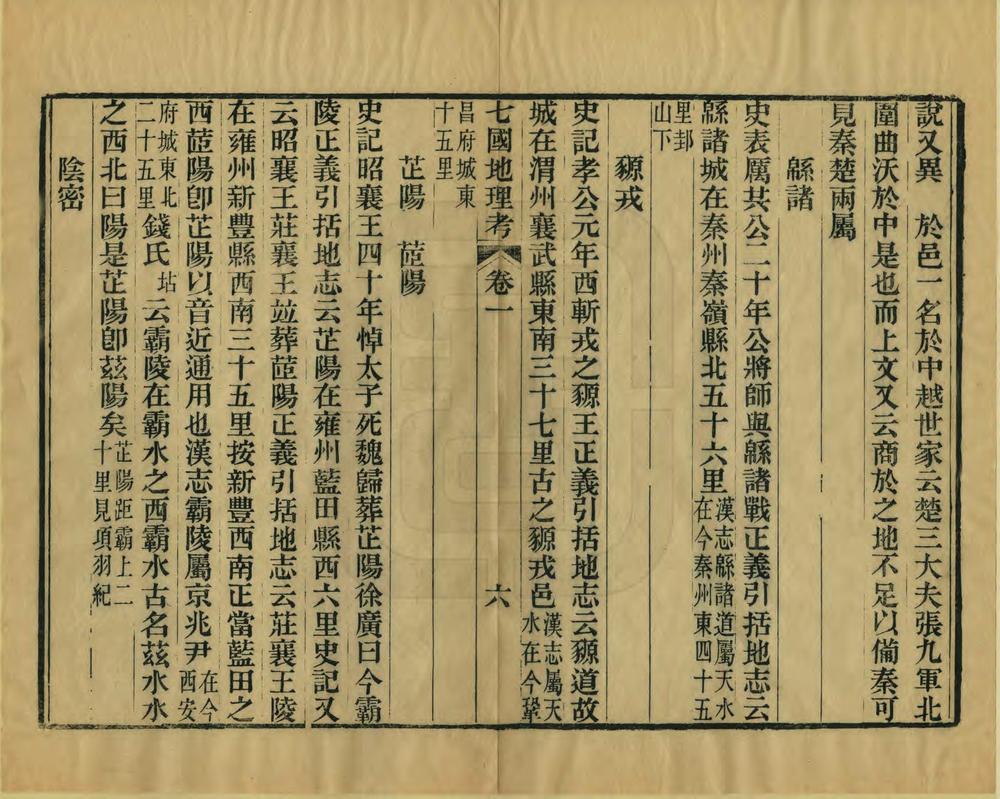 說又異　於邑一名於中越世家云楚三大夫張九軍北
圍曲沃於中是也而上文又云商於之地不足以備秦可
見秦楚兩屬
緜諸
史表厲共公二十年公將師與緜諸戰正義引括地志云
緜諸城在秦州秦嶺縣北五十六里漢志緜諸道屬天水在今秦州東四十五
里邽山下
豲戎
史記孝公元年西斬戎之豲王正義引括地志云豲道故
城在渭州襄武縣東南三十七里古之豲戎邑漢志屬天水在今鞏
七國地理考　卷一　六
昌府城東十五里
芷陽　茝陽
史記昭襄王四十年悼太子死魏歸葬芷陽徐廣曰今霸
陵正義引括地志云芷陽在雍州藍田縣西六里史記又
云昭襄王莊襄王竝葬茝陽正義引括地志云莊襄王陵
在雍州新豐縣西南三十五里按新豐西南正當藍田之
西茝陽卽芷陽以音近通用也漢志霸陵屬京兆尹在今西安
府城東北二十五里錢氏坫云霸陵在霸水之西霸水古名茲水水
之西北曰陽是芷陽卽茲陽矣芷陽距霸上二十里見項羽紀
陰密